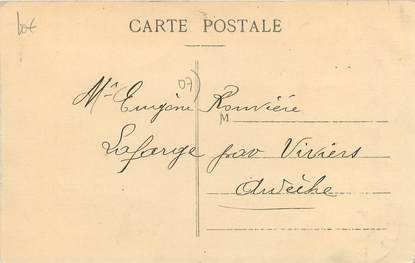 60€
CARTE POSTALE
07)
Mr Eugène Rouvière
M
Lafarge par Viviers
Ardèche